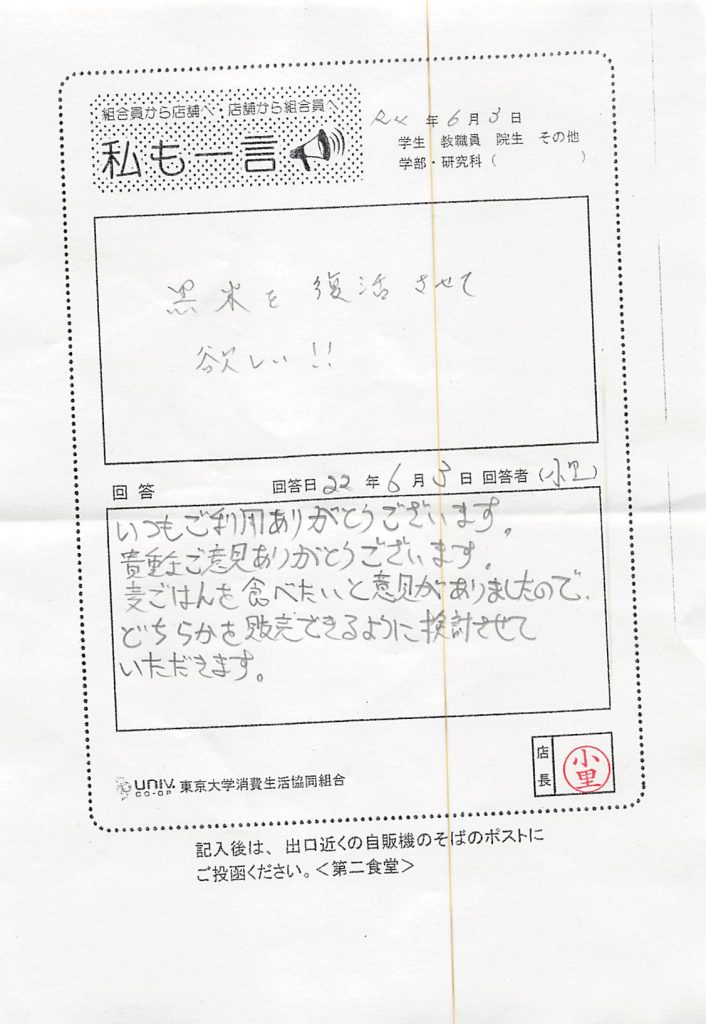 組合員から店舗へ・店舗から組合員へ
私も一言
22 年 6 月 3 日
学生 教職員 院生 その他
学部・研究科 ( )
黒米を復活させて
欲しい!!
回答 回答日 22 年 6 月 3 日 回答者 (小里)
いつもご利用ありがとうございます。
貴重なご意見ありがとうございます。
麦ごはんを食べたいと意見がありましたので、
どちらかを販売できるように検討させて
いただきます。
店長 小里
UNIV. CO-OP 東京大学消費生活協同組合
記入後は、出口近くの自販機のそばのポストに
ご投函ください。<第二食堂>